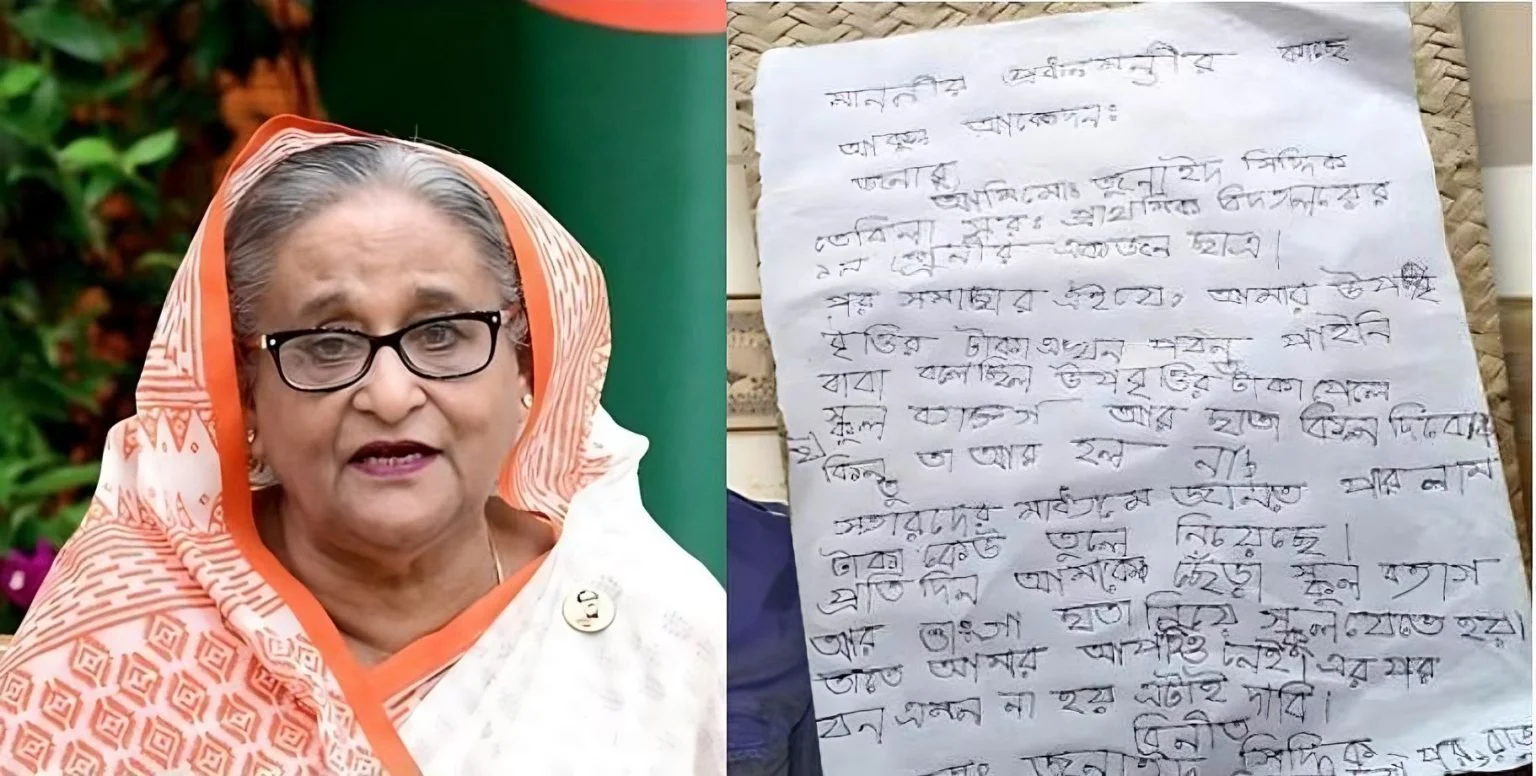 মাননীয় প্রধানমন্ত্রীর কাছে
আকুল আবেদন:
জনাব,
আমি মো: জুনাইদ সিদ্দিক
তেবিলা সর: প্রাথমিক বিদ্যালয়ের
শ্রেনীর একজন ছাত্র।
পর সমাচার এই যে, আমার উপ
বৃত্তির টাকা এখন পযন্ত পাইনি
বাবা বলেছিল উপবৃত্তির টাকা পেলে
স্কুল ব্যাগ আর ছাতা কিনে দিবো
কিন্তু তা আর হল না,
স্যারদের মাধ্যমে জানতে পারলাম
টাকা কেউ তুলে নিয়েছে।
প্রতি দিন আমাকে ছেঁড়া স্কুল ব্যাগ
আর ভাংগা ছাতা নিয়ে স্কুল যেতে হয়।
তাতে আমার আপত্তি নেই। এর পর
যেন এমন না হয় এটাই দাবি।
বিনীত
জুনাইদ সিদ্দিক